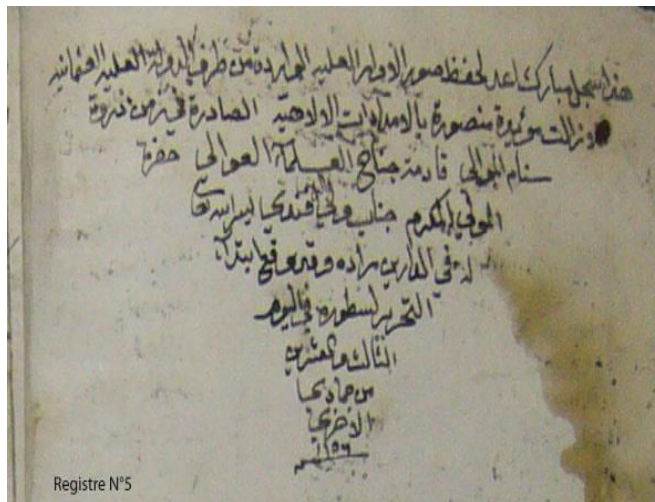 هذا سجل مبارك اعد لحفظ صور الاوامر العليه الواردة من طرف الدولة العليه العثمانيه
لا زالت مؤيدة منصورة بالامدادات الالاهية الصادرة في زمن ذروة
سنام الموالي قادمة جناح العوالي حضرة
المولي المكرم جناب ولي افندي يسر الله
له في الدارين مراده وقد وقع ابتداء
التحرير لسطوره في اليوم
الثالث والعشرين
من جمادي
الاخري
Registre N°5